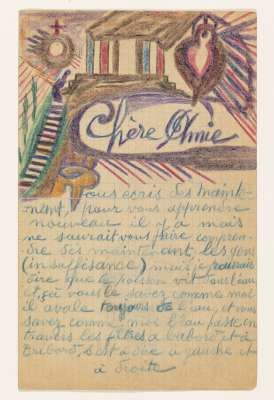 Chère Amie
Vous écris dès mainte-
nent, pour vous apprendre
nouveau il y a mais
ne saurait vous faire compren-
dre dès maintenant, les gens
(insuffisance) mais je pourais
dire que le poisson vit dans l'eau
et, ça vous le savez comme moi
il avale toujours de l'eau, et vous
savez comme moi l'eau passe en
travers les filtres a babord et à
tribord, s'est à dire a gauche et
à droite